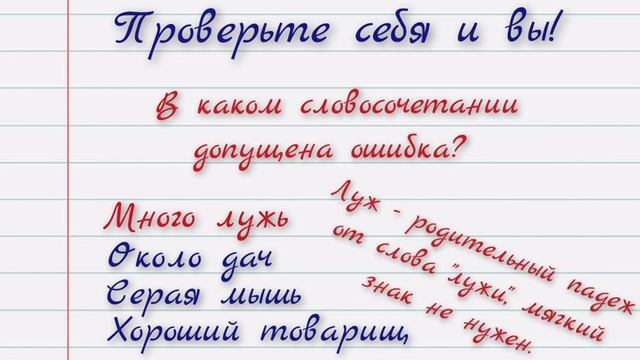 Проверьте себя и вы!
В каком словосочетании
допущена ошибка?
Много лужь
Около дач
Серая мышь
Хороший товарищ
Луж - родительный падеж
от слова "лужи", мягкий
знак не нужен.